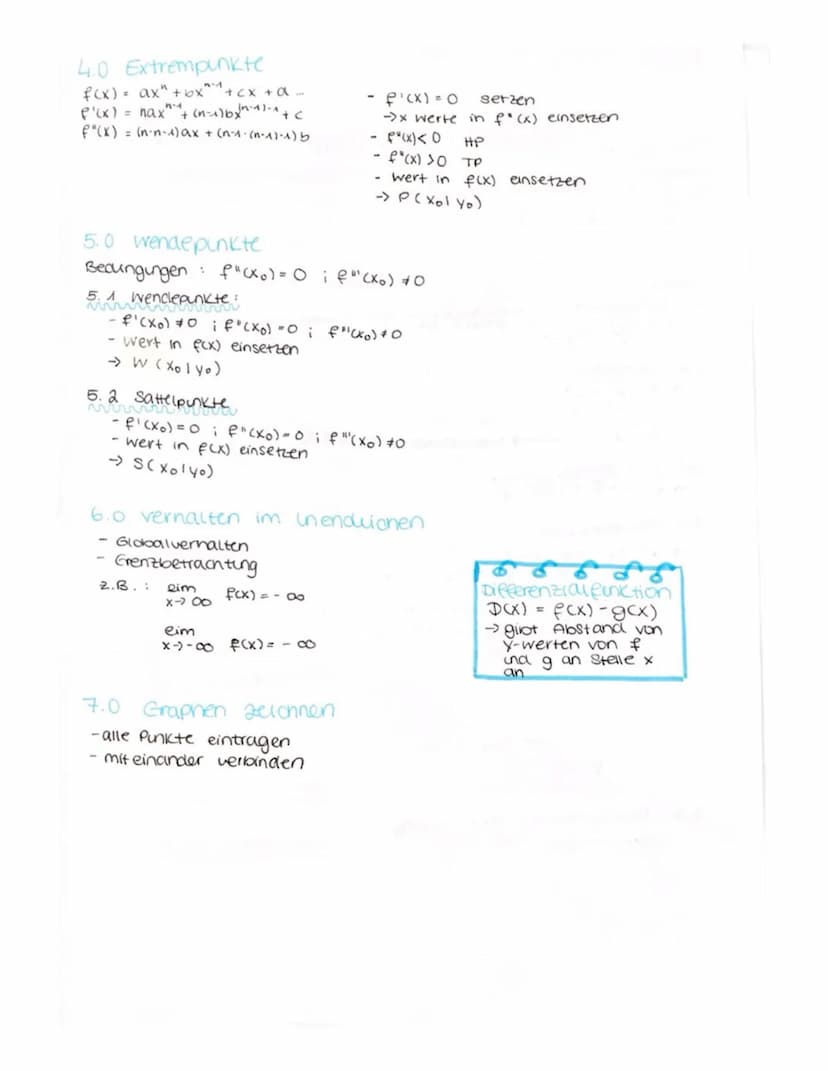 4.0 Extrempunkte
f(x) = axⁿ + bxⁿ⁻¹ + cx + d ...
f'(x) = naxⁿ⁻¹ + (n-1)bx⁽ⁿ⁻¹⁾⁻¹ + c
f"(x) = (n·n-1)ax + (n-1·(n-1)-1)b
- f'(x) = 0 setzen
→ x werte in f"(x) einsetzen
- f"(x) < 0 HP
- f"(x) > 0 TP
- wert in f(x) einsetzen
→ P(x₀|y₀)
5.0 Wendepunkte
Bedingungen : f"(x₀) = 0 ; f'''(x₀) ≠ 0
5.1 Wendepunkte:
- f'(x₀) ≠ 0 ; f"(x₀) = 0 ; f'''(x₀) ≠ 0
- wert in f(x) einsetzen
→ W (x₀|y₀)
5.2 Sattelpunkte
- f'(x₀) = 0 ; f"(x₀) = 0 ; f'''(x₀) ≠ 0
- wert in f(x) einsetzen
→ S(x₀|y₀)
6.0 verhalten im Unendlichen
- Globalverhalten
- Grenzbetrachtung
z.B. : lim x→∞ f(x) = - ∞
lim x→-∞ f(x) = - ∞
Differenzialfunktion
D(x) = f(x) - g(x)
→ gibt Abstand von
y-werten von f
und g an Stelle x
an
7.0 Graphen zeichnen
- alle Punkte eintragen
- miteinander verbinden